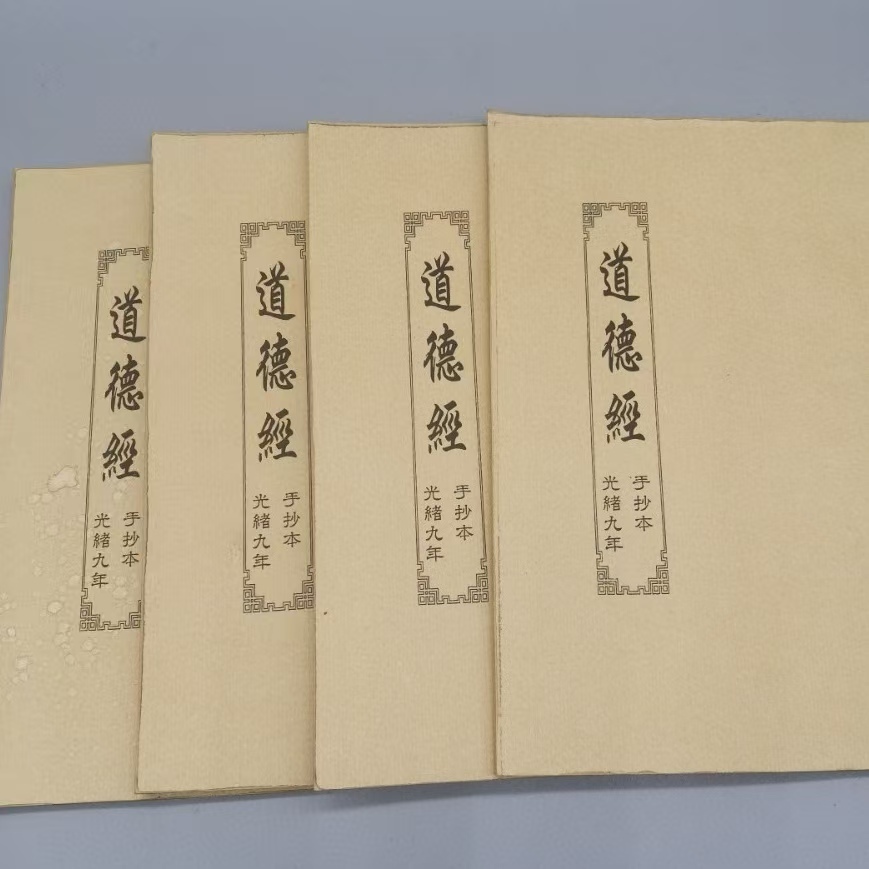 道德經
手抄本
光緒九年
道德經
手抄本
光緒九年
道德經
手抄本
光緒九年
道德經
手抄本
光緒九年